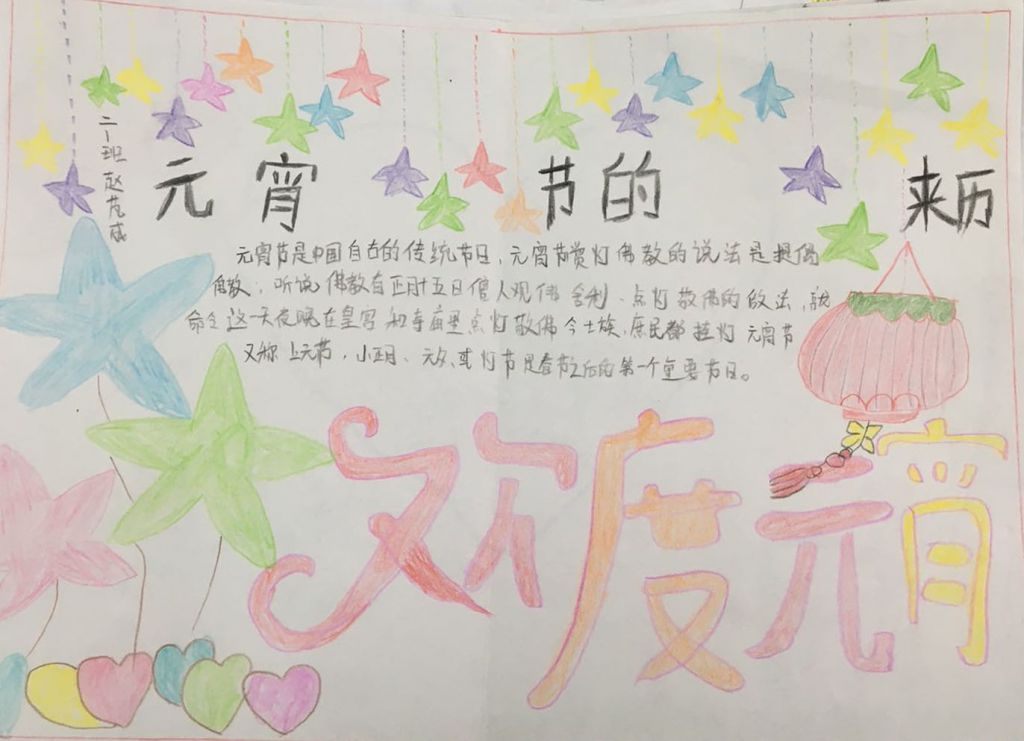 元宵节的来历
二一班
元宵节是中国自古的传统节日,元宵节赏灯佛教的说法是提倡
佛教,听说佛教有正月十五日僧人观佛舍利、点灯敬佛的做法,就
命令这一天夜晚在皇宫和寺庙里点灯敬佛令士族、庶民都挂灯元宵节
又称上元节,小正月、元夕或灯节是春节之后的第一个重要节日。
欢度元宵